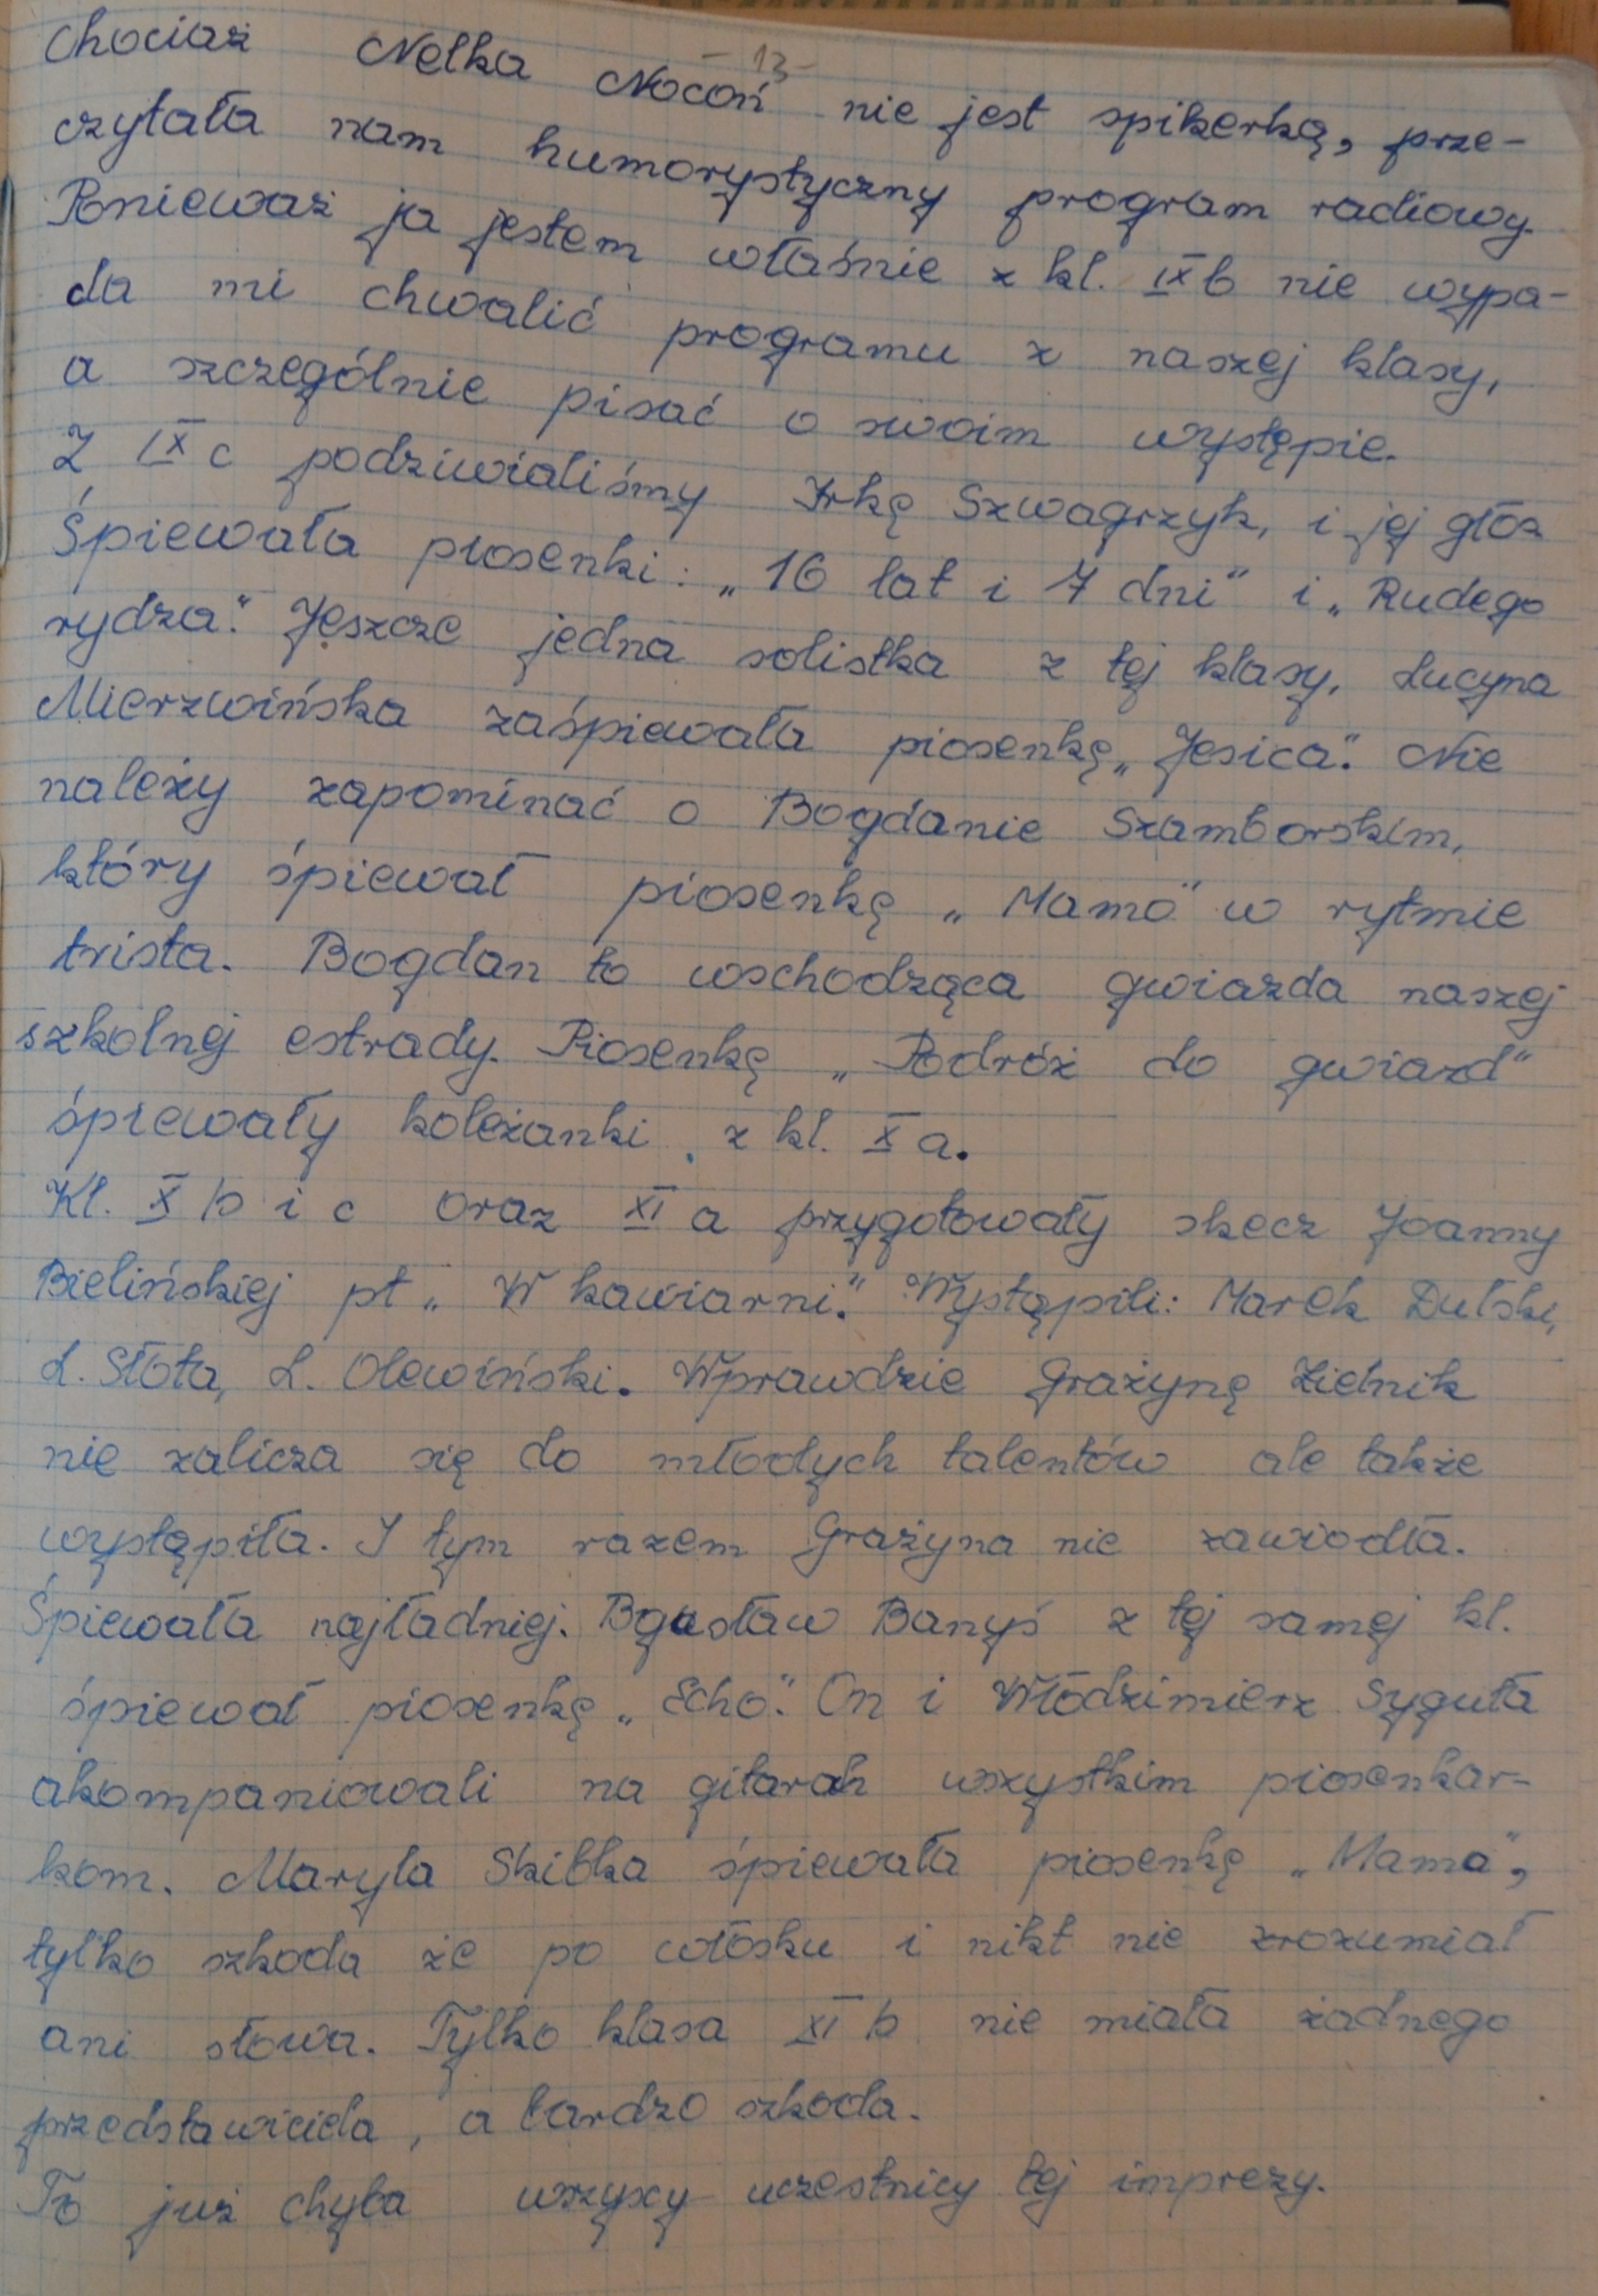 - 13 -
Chociaż Nelka Nocoń nie jest spikerką, prze-
czytała nam humorystyczny program radiowy.
Ponieważ ja jestem właśnie z kl. IX b nie wypa-
da mi chwalić programu z naszej klasy,
a szczególnie pisać o swoim występie.
Z IX c podziwialiśmy Irkę Szwagrzyk, i jej głos
Śpiewała piosenki: „16 lat i 7 dni" i „Rudego
rydza". Jeszcze jedna solistka z tej klasy, Lucyna
Mierzwińska zaśpiewała piosenkę „Jesica". Nie
należy zapominać o Bogdanie Szamborskim,
który śpiewał piosenkę „Mamo" w rytmie
tvista. Bogdan to wschodząca gwiazda naszej
szkolnej estrady. Piosenkę „Podróż do gwiazd"
śpiewały koleżanki z kl. X a.
Kl. X b i c oraz XI a przygotowały skecz Joanny
Bielińskiej pt „W kawiarni". Wystąpili: Marek Dulski,
L. Słota, L. Olewiński. Wprawdzie Grażynę Zielnik
nie zalicza się do młodych talentów ale także
wystąpiła. I tym razem Grażyna nie zawiodła.
Śpiewała najładniej. Bgusław Banyś z tej samej kl.
śpiewał piosenkę „Echo". On i Włodzimierz Syguła
akompaniowali na gitarach wszystkim piosenkar-
kom. Maryla Skibka śpiewała piosenkę „Mama",
tylko szkoda że po włosku i nikt nie zrozumiał
ani słowa. Tylko klasa XI b nie miała żadnego
przedstawiciela, a bardzo szkoda.
To już chyba wszyscy uczestnicy tej imprezy.